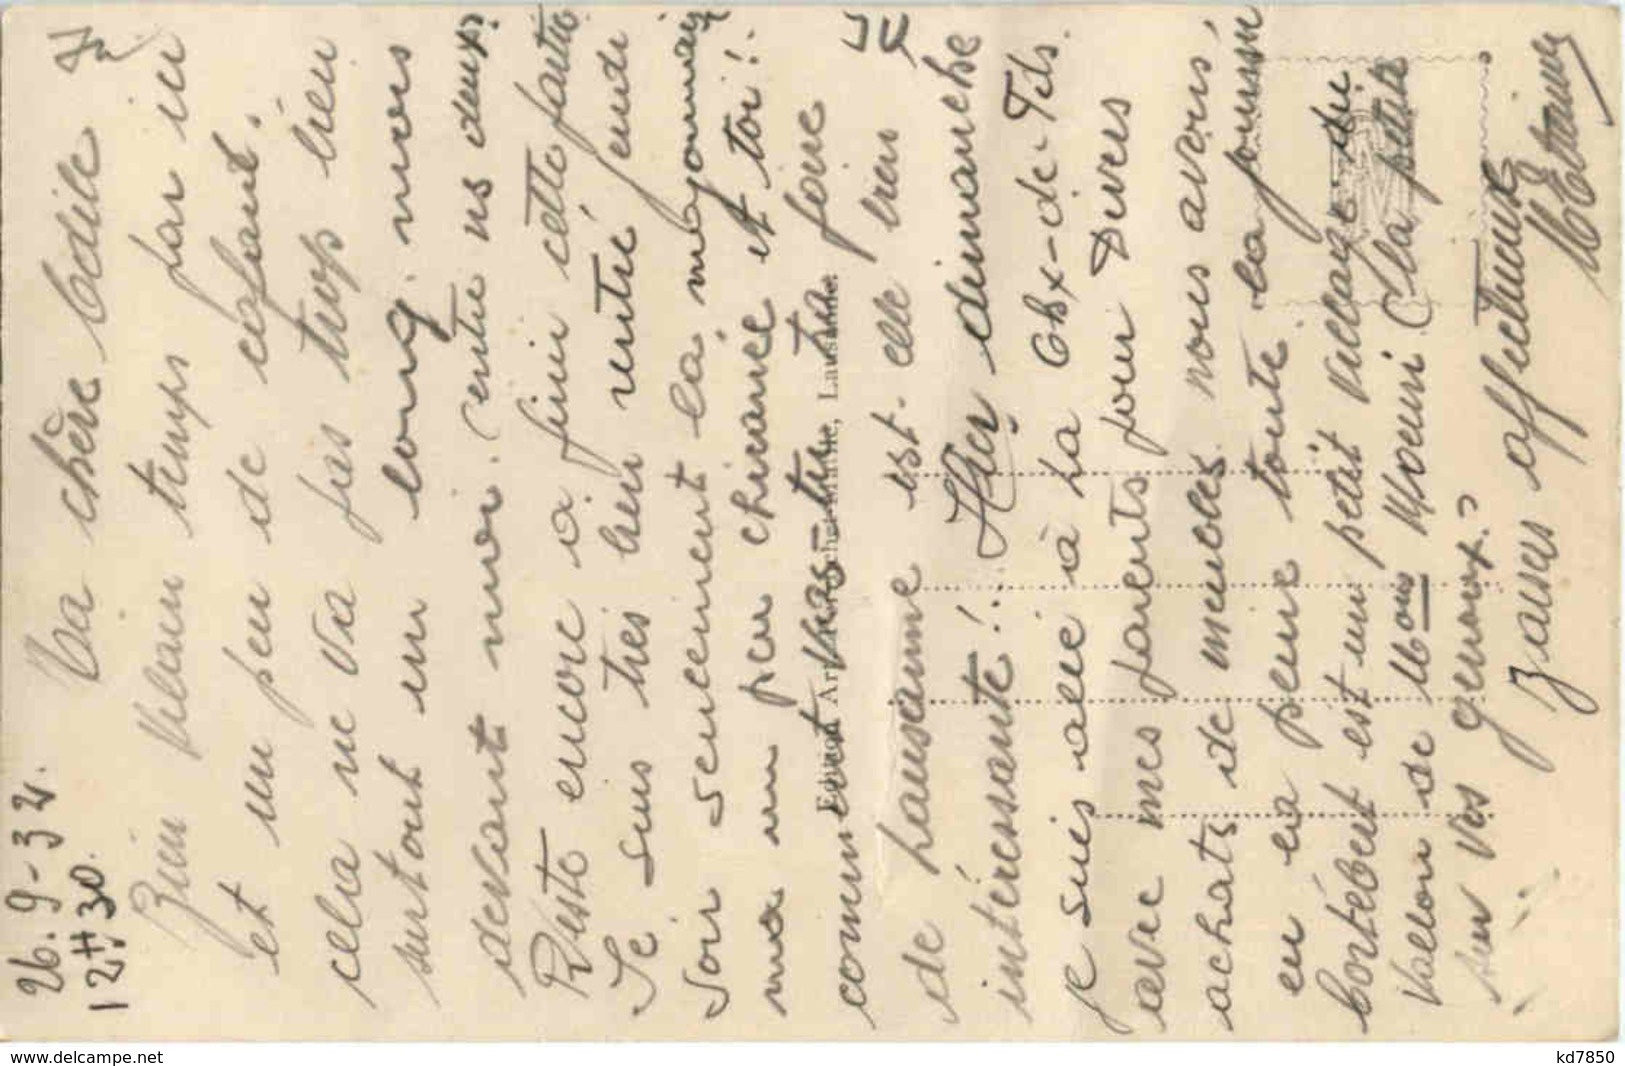 26.9-32.
12H30.
Ma chère Odile
Bien vilain temps par ici
et un peu de cafard.
cela ne va pas trop bien
surtout un long mois
devant moi. (entre ns deux?
Reste encore à finir cette
Je suis très bien rentré lundi
soir seulement la
m'a un peu chicané et toi!
comment vas-tu ta
de Lausanne est-elle bien
intéressante! Hier dimanche
je suis allé à La Chx-de-Fds.
avec mes parents pour divers
achats de meubles nous avons
eu la peine toute la journée
Cortébert est un petit village du
Vallon de (la petite
sur vos genoux?
Baisers affectueux
Editeur Art. Perrochet-Matile, Lausanne.
www.delcampe.net
kd7850